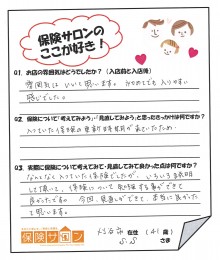 保険サロンの
ここが好き！
Q1. お店の雰囲気はどうでしたか？（入店前と入店後）
雰囲気は いいと思います。 はじめてでも 入りやすい
感じでした。
Q2. 保険について「考えてみよう」・「見直してみよう」と思ったきっかけは何ですか？
入っていた保険の更新時期が来ていたため。
Q3. 実際に保険について考えてみて・見直してみて良かった点は何ですか？
なんとなく入っていた保険でしたが、いろいろ説明
して頂いて、保険について勉強する事ができて
良かったです。今回、見直しができて、本当に良かった
と思います。
保険サロン
在住 （41 歳）
S.S さま